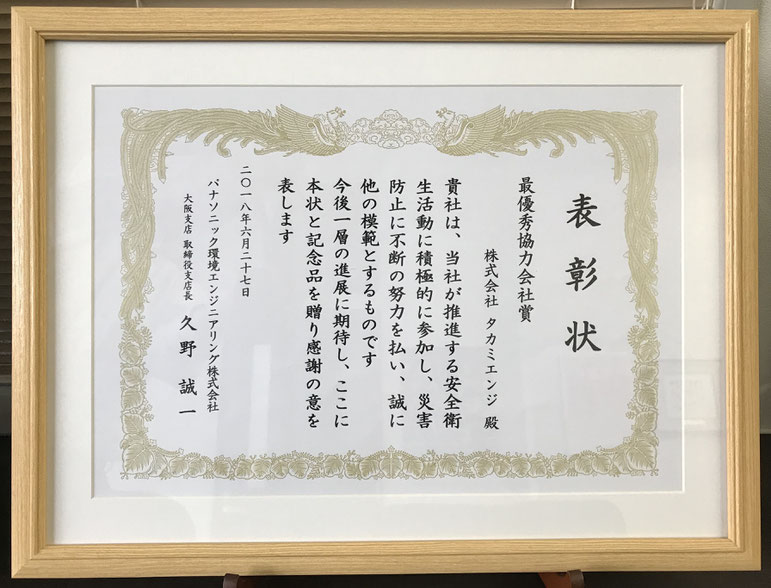 表彰状
最優秀協力会社賞
株式会社 タカミエンジ 殿
貴社は、当社が推進する安全衛
生活動に積極的に参加し、災害
防止に不断の努力を払い、誠に
他の模範とするものです
今後一層の進展に期待し、ここに
本状と記念品を贈り感謝の意を
表します
二〇一八年六月二十七日
パナソニック環境エンジニアリング株式会社
大阪支店 取締役支店長 久野 誠一